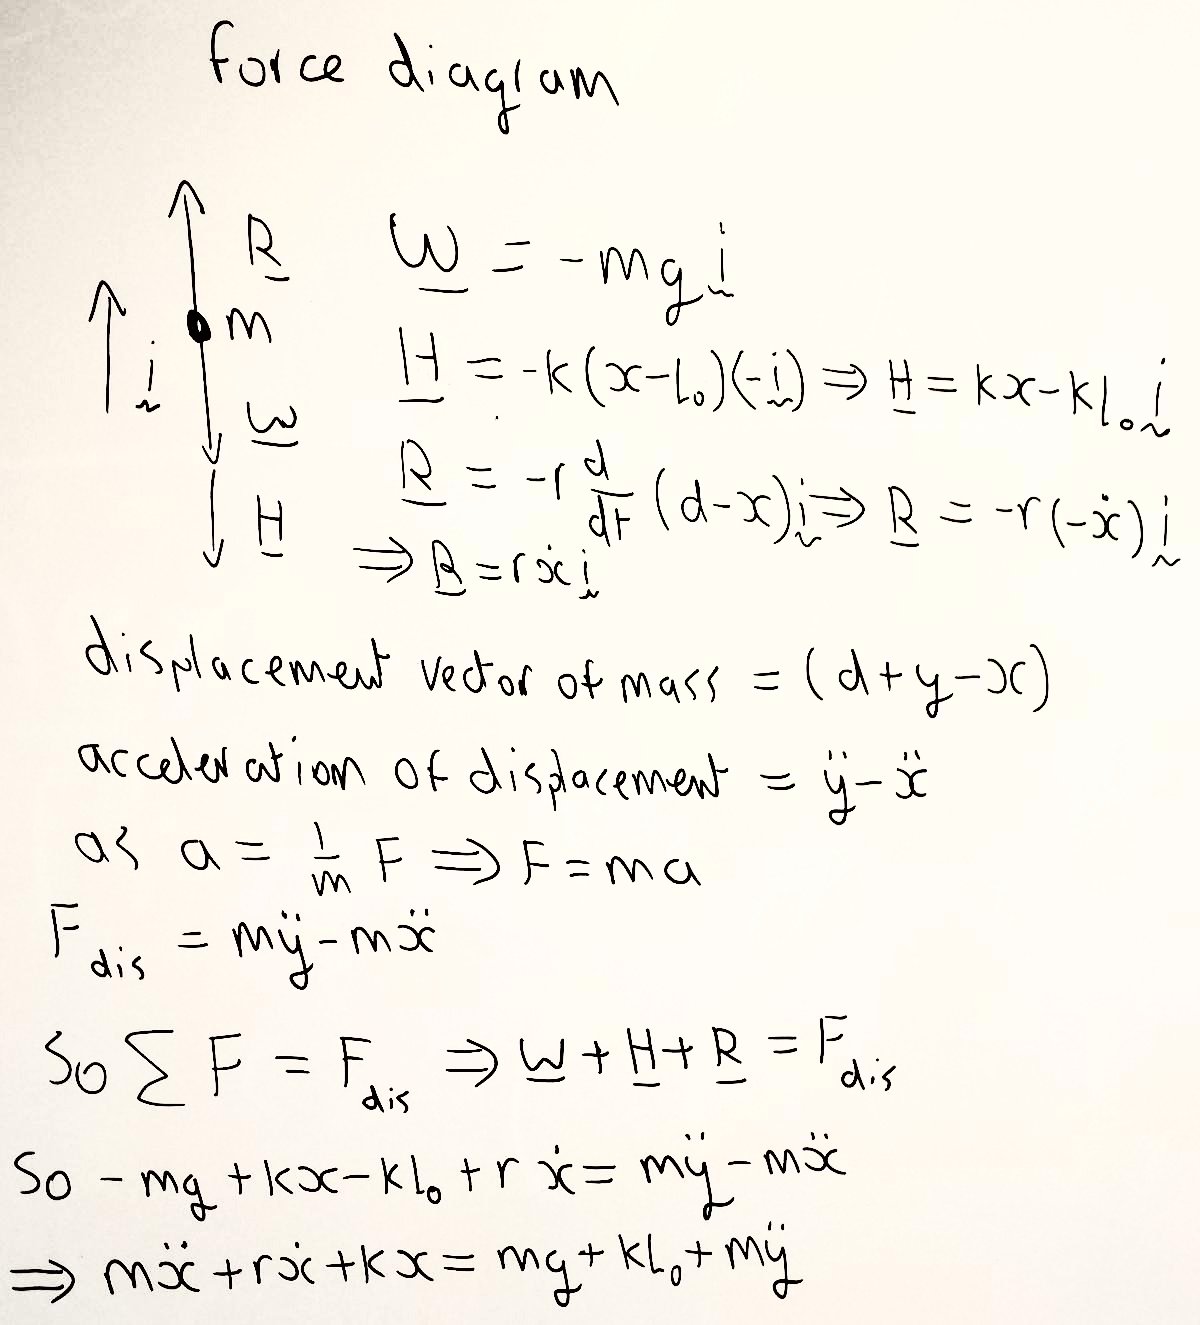 force diagram
R
m
i
W
H
W = -mg i
H = -k(x-l₀)(-i) ⇒ H = kx-kl₀ i
R = -r d/dt (d-x) i ⇒ R = -r(-ẋ) i
⇒ R = rẋ i
displacement vector of mass = (d+y-x)
acceleration of displacement = ÿ-ẍ
as a = 1/m F ⇒ F = ma
F dis = mÿ-mẍ
So ∑ F = F dis ⇒ W + H + R = F dis
So -mg + kx-kl₀ + r ẋ = mÿ-mẍ
⇒ mẍ + rẋ + kx = mg + kl₀ + mÿ